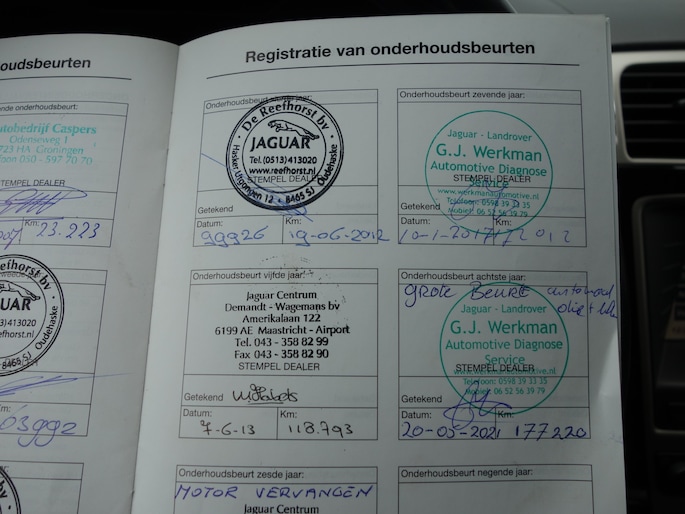 oudsbeurten
nde onderhoudsbeurt:
tobedrijf Caspers
Odenseweg 1
723 HA Groningen
foon 050 - 597 70 70
STEMPEL DEALER
23.223
efhorst bv
JAGUAR
Oudehaske
8465 SJ
Registratie van onderhoudsbeurten
De Reefhorst bv
JAGUAR
Tel. (0513)413020
www.reefhorst.nl
STEMPEL DEALER
8465 SJ Oudehaske
Getekend
Datum: Km:
99926 19-06-2012
Onderhoudsbeurt vijfde jaar:
Jaguar Centrum
Demandt - Wagemans bv
Amerikalaan 122
6199 AE Maastricht - Airport
Tel. 043 - 358 82 99
Fax 043 - 358 82 90
STEMPEL DEALER
Getekend
Datum: Km:
7-6-13 118.793
Onderhoudsbeurt zesde jaar:
MOTOR VERVANGEN
Jaguar Centrum
Onderhoudsbeurt zevende jaar:
Jaguar - Landrover
G.J. Werkman
Automotive Diagnose
Service
STEMPEL DEALER
www.werkmanautomotive.nl
Telefoon: 0598 39 33 35
Mobiel: 06 52 56 39 79
Getekend
Datum: Km:
10-1-2017
Onderhoudsbeurt achtste jaar:
GROTE BEURT
Jaguar - Landrover
G.J. Werkman
Automotive Diagnose
Service
STEMPEL DEALER
Telefoon: 0598 39 33 35
Mobiel: 06 52 56 39 79
Getekend
Datum: Km:
20-05-2021 177220
Onderhoudsbeurt negende jaar: